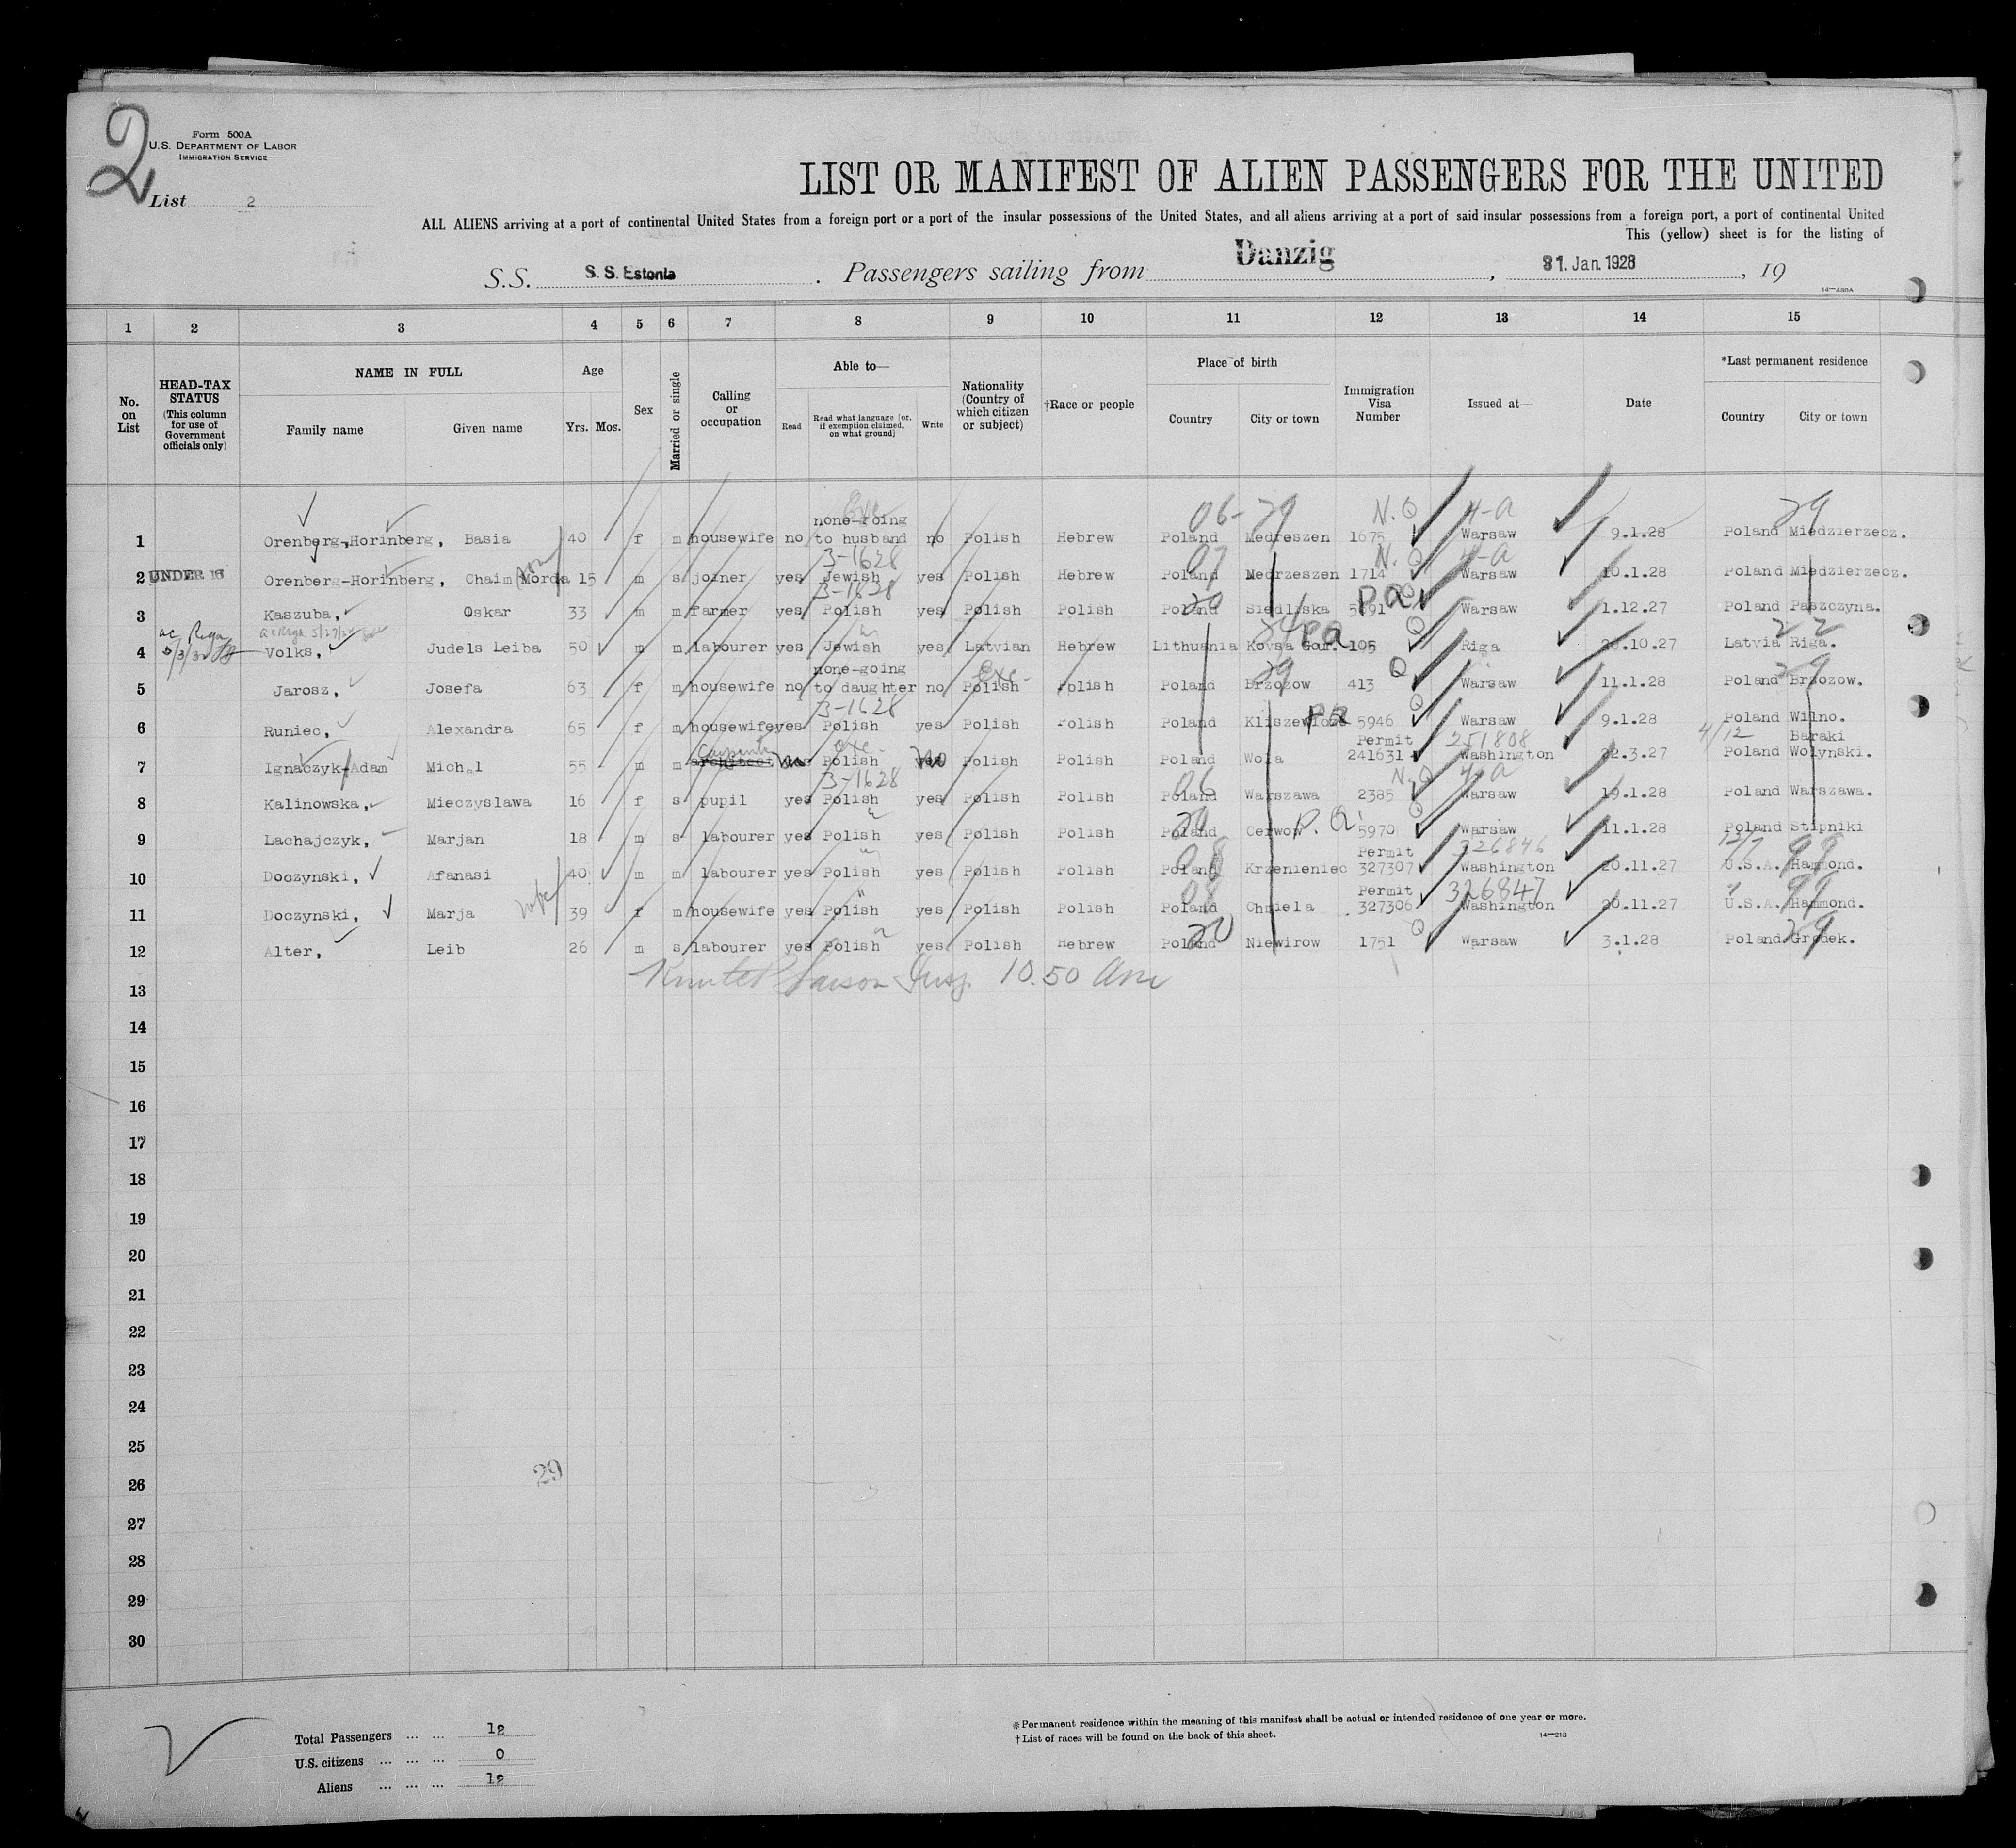 2
Form 500A
U.S. DEPARTMENT OF LABOR
IMMIGRATION SERVICE
List 2
LIST OR MANIFEST OF ALIEN PASSENGERS FOR THE UNITED
ALL ALIENS arriving at a port of continental United States from a foreign port or a port of the insular possessions of the United States, and all aliens arriving at a port of said insular possessions from a foreign port, a port of continental United
This (yellow) sheet is for the listing of
S.S. S. S. Estonia . Passengers sailing from Danzig , 31. Jan. 1928 , 19
14—430A
1 2 3 4 5 6 7 8 9 10 11 12 13 14 15
No. on List
HEAD-TAX STATUS (This column for use of Government officials only)
NAME IN FULL
Family name Given name
Age
Yrs. Mos.
Sex
Married or single
Calling or occupation
Able to—
Read Read what language [or, if exemption claimed, on what ground] Write
Nationality (Country of which citizen or subject)
†Race or people
Place of birth
Country City or town
Immigration Visa Number
Issued at—
Date
*Last permanent residence
Country City or town
06-29 N.Q 4-a 29
none-going
1 Orenberg-Horinberg, Basia 40 f m housewife no to husband no Polish Hebrew Poland Medreszen 1675 Warsaw 9.1.28 Poland Miedzierzecz.
3-1628 07 N.Q 4-a
2 UNDER 16 Orenberg-Horinberg, Chaim Mordka 15 m s joiner yes Jewish yes Polish Hebrew Poland Medrzeszen 1714 Warsaw 10.1.28 Poland Miedzierzecz.
3-1628
3 Kaszuba, Oskar 33 m m farmer yes Polish yes Polish Polish Poland Siedliska PQ Warsaw 1.12.27 Poland Paszczyna.
PQ Q 22
4 Volks, Judels Leiba 50 m m labourer yes Jewish yes Latvian Hebrew Lithuania Kovsa Gour. 105 Riga 10.27 Latvia Riga.
none-going exc- 29 Q 29
5 Jarosz, Josefa 63 f m housewife no to daughter no Polish Polish Poland Brzozow 413 Warsaw 11.1.28 Poland Brzozow.
3-1628 Q
6 Runiec, Alexandra 65 f m housewife yes Polish yes Polish Polish Poland PQ 5946 Warsaw 9.1.28 Poland Wilno.
exc- Permit 251808 4/12 Baraki
7 Ignaczyk-Adam Michal 55 m m architect no Polish no Polish Polish Poland Wola 241631 Washington 22.3.27 Poland Wolynski.
3-1628 06 N.Q 4-a
8 Kalinowska, Mieczyslawa 16 f s pupil yes Polish yes Polish Polish Poland Warszawa 2385 Warsaw 19.1.28 Poland Warszawa.
20 P.Q. Q
9 Lachajczyk, Marjan 18 m s labourer yes Polish yes Polish Polish Poland Cerwow 5970 Warsaw 11.1.28 Poland Stipniki
08 Permit 326846 99
10 Doczynski, Afanasi 40 m m labourer yes Polish yes Polish Polish Poland Krzenieniec 327307 Washington 20.11.27 U.S.A. Hammond.
wife 08 Permit 326847 99
11 Doczynski, Marja 39 f m housewife yes Polish yes Polish Polish Poland Chmiela 327306 Washington 20.11.27 U.S.A. Hammond.
20 Q 29
12 Alter, Leib 26 m s labourer yes Polish yes Polish Hebrew Poland Niewirow 1751 Warsaw 3.1.28 Poland Grodek.
Insp. 10.50 am
13
14
15
16
17
18
19
20
21
22
23
24
25
29
26
27
28
29
30
Total Passengers ... ... 12
U.S. citizens ... ... ... 0
Aliens ... ... ... 12
*Permanent residence within the meaning of this manifest shall be actual or intended residence of one year or more.
†List of races will be found on the back of this sheet.
14—213